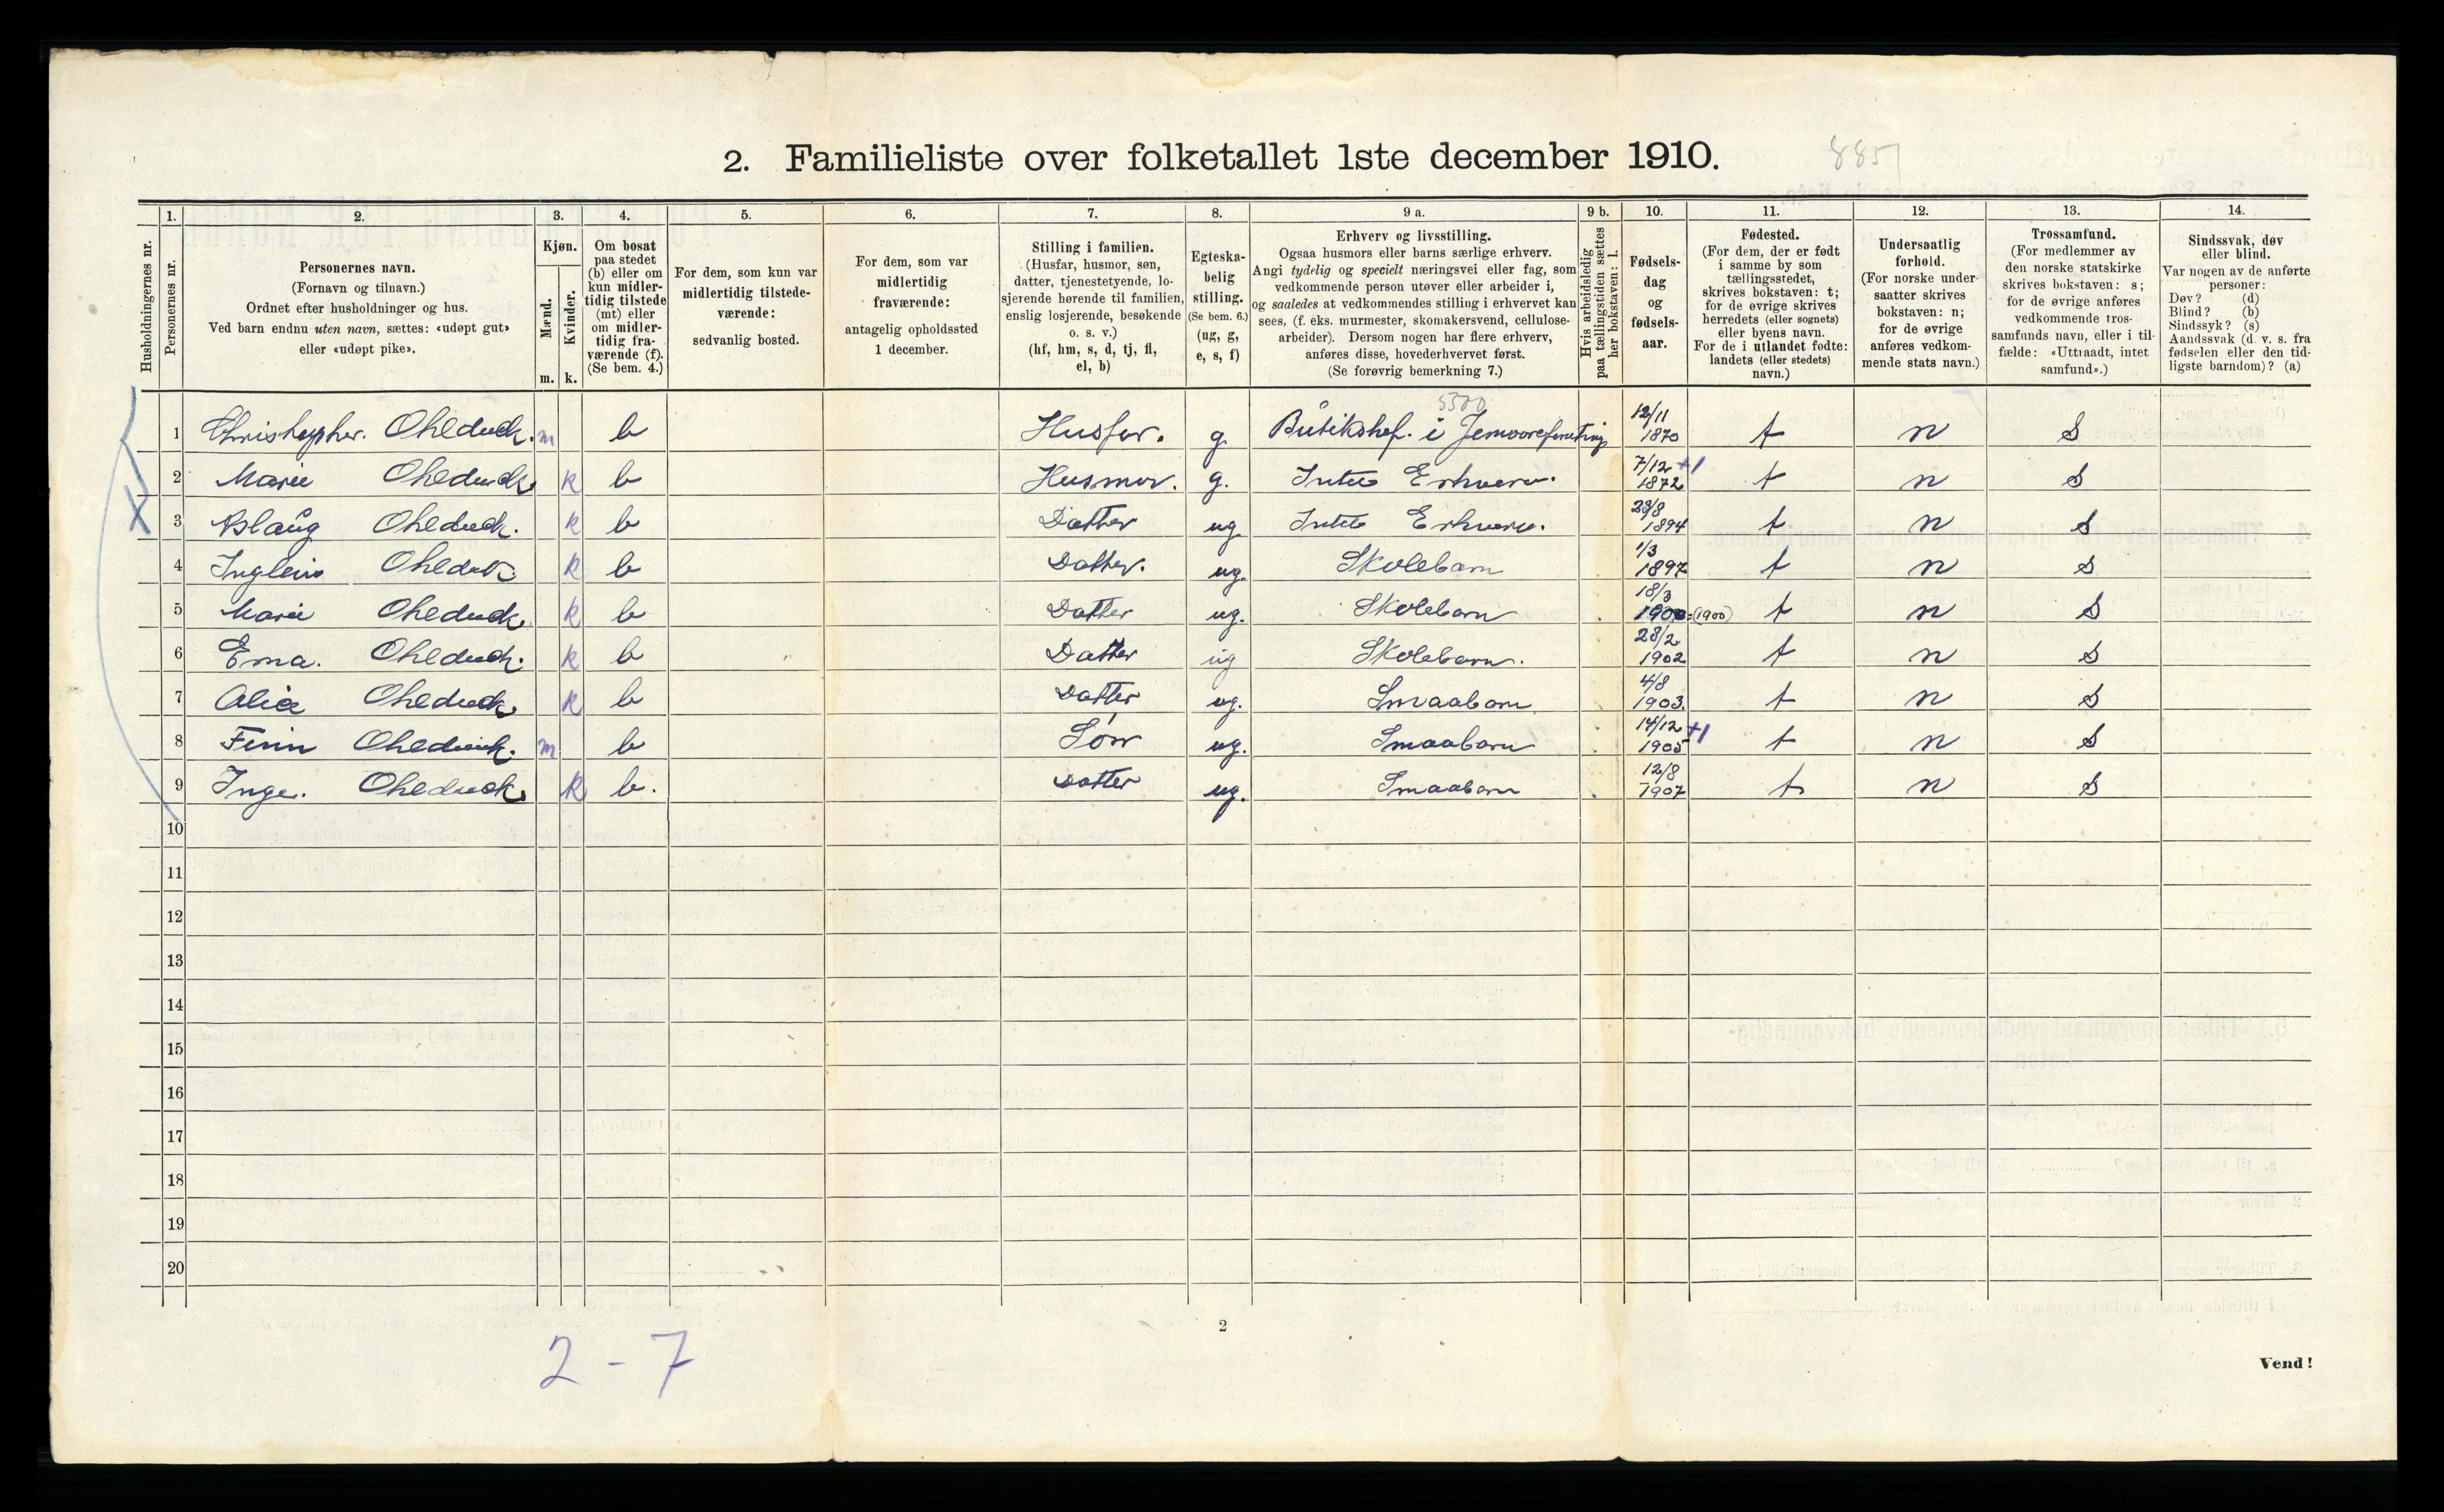 2. Familieliste over folketallet 1ste december 1910.
885
Husholdningernes nr.
1.
Personernes nr.
2.
Personernes navn.
(Fornavn og tilnavn.)
Ordnet efter husholdninger og hus.
Ved barn endnu uten navn, sættes: «udøpt gut»
eller «udøpt pike».
3.
Kjøn.
Mænd.
m.
Kvinder.
k.
4.
Om bosat
paa stedet
(b) eller om
kun midler-
tidig tilstede
(mt) eller
om midler-
tidig fra-
værende (f).
(Se bem. 4.)
5.
For dem, som kun var
midlertidig tilstede-
værende:
sedvanlig bosted.
6.
For dem, som var
midlertidig
fraværende:
antagelig opholdssted
1 december.
7.
Stilling i familien.
(Husfar, husmor, søn,
datter, tjenestetyende, lo-
sjerende hørende til familien,
enslig losjerende, besøkende
o. s. v.)
(hf, hm, s, d, tj, fl,
el, b)
8.
Egteska-
belig
stilling.
(Se bem. 6.)
(ug, g,
e, s, f)
9 a.
Erhverv og livsstilling.
Ogsaa husmors eller barns særlige erhverv.
Angi tydelig og specielt næringsvei eller fag, som
vedkommende person utøver eller arbeider i,
og saaledes at vedkommendes stilling i erhvervet kan
sees, (f. eks. murmester, skomakersvend, cellulose-
arbeider). Dersom nogen har flere erhverv,
anføres disse, hovederhvervet først.
(Se forøvrig bemerkning 7.)
9 b.
Hvis arbeidsledig
paa tællingstiden sættes
her bokstaven: l.
10.
Fødsels-
dag
og
fødsels-
aar.
11.
Fødested.
(For dem, der er født
i samme by som
tællingsstedet,
skrives bokstaven: t;
for de øvrige skrives
herredets (eller sognets)
eller byens navn.
For de i utlandet fødte:
landets (eller stedets)
navn.)
12.
Undersaatlig
forhold.
(For norske under-
saatter skrives
bokstaven: n;
for de øvrige
anføres vedkom-
mende stats navn.)
13.
Trossamfund.
(For medlemmer av
den norske statskirke
skrives bokstaven: s;
for de øvrige anføres
vedkommende tros-
samfunds navn, eller i til-
fælde: «Uttraadt, intet
samfund».)
14.
Sindssvak, døv
eller blind.
Var nogen av de anførte
personer:
Døv? (d)
Blind? (b)
Sindssyk? (s)
Aandssvak (d. v. s. fra
fødselen eller den tid-
ligste barndom)? (a)
5300
1 Christopher. Ohldieck. m b Husfar. g. i 12/11 1870 t n S
2 Marie Ohldieck k b Husmor. g. Intet Erhverv. 7/12 +1 1872 t n S
3 Aslaug Ohldieck. k b Datter ug Intet Erhverv. 23/8 1894 t n S
4 Ohldieck k b Datter. ug. Skolebarn 1/3 1897 t n S
5 Marie Ohldieck. k b Datter ug. Skolebarn 18/3 1900 = (1900) t n S
6 Erna. Ohldieck. k b Datter ug Skolebarn. 28/2 1902 t n S
7 Alice Ohldieck k b Datter ug. Smaabarn 4/8 1903. t n S
8 Finn Ohldieck. m b Sön ug. Smaabarn 14/12 +1 1905 t n S
9 Inge. Ohldieck k b. Datter ug. Smaabarn 12/8 1907 t n S
10
11
12
13
14
15
16
17
18
19
20
2
2 - 7
Vend!